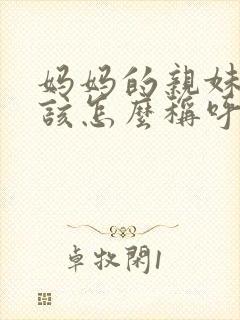 媽媽的親妹
該怎麼稱呼
卓牧閑1